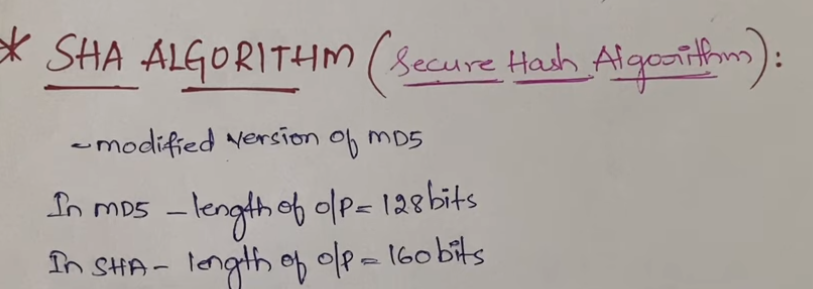 * SHA ALGORITHM (Secure Hash Algorithm):
- modified version of MD5
In MD5 - length of o/p = 128 bits
In SHA - length of o/p = 160 bits